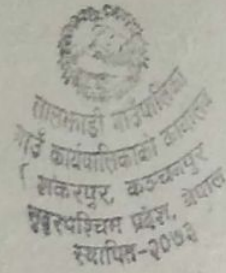 गाउँपालिका
गाउँ कार्यपालिकाको कार्यालय
शंकरपुर, कञ्चनपुर
सुदूरपश्चिम प्रदेश, नेपाल
स्थापित-२०७३